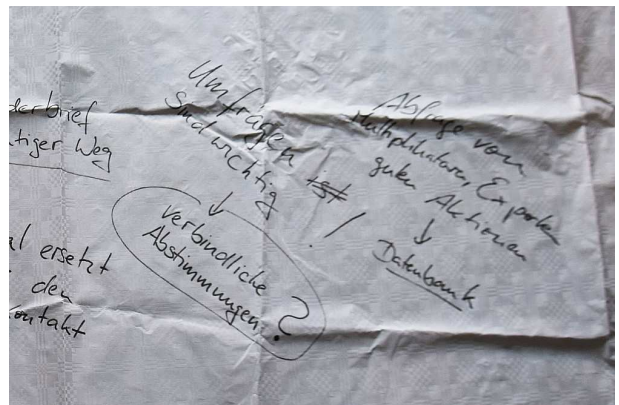 derbrief
tiger Weg
al ersetzt
den
ontakt
Umfragen ist
sind wichtig !
↓
verbindliche
Abstimmungen. ?
Abfrage von
Multiplikatoren, Experten
guten Aktionen
↓
Datenbank